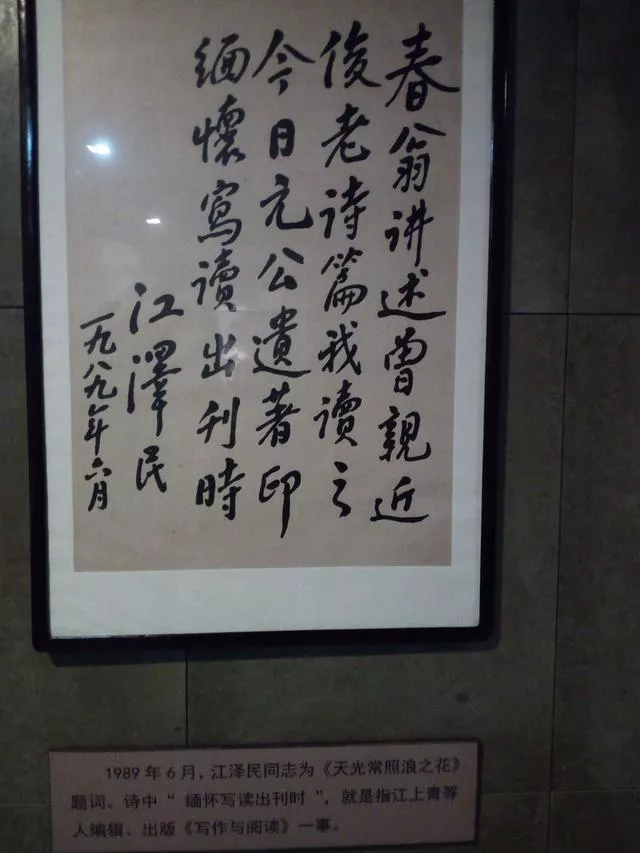 春翁讲述曾親近
俊老诗篇我读之
今日元公遺著印
缅懷寫讀出刊時
江澤民
一九八九年六月
1989年6月，江泽民同志为《天光常照浪之花》
题词。诗中“缅怀写读出刊时”，就是指江上青等
人编辑、出版《写作与阅读》一事。